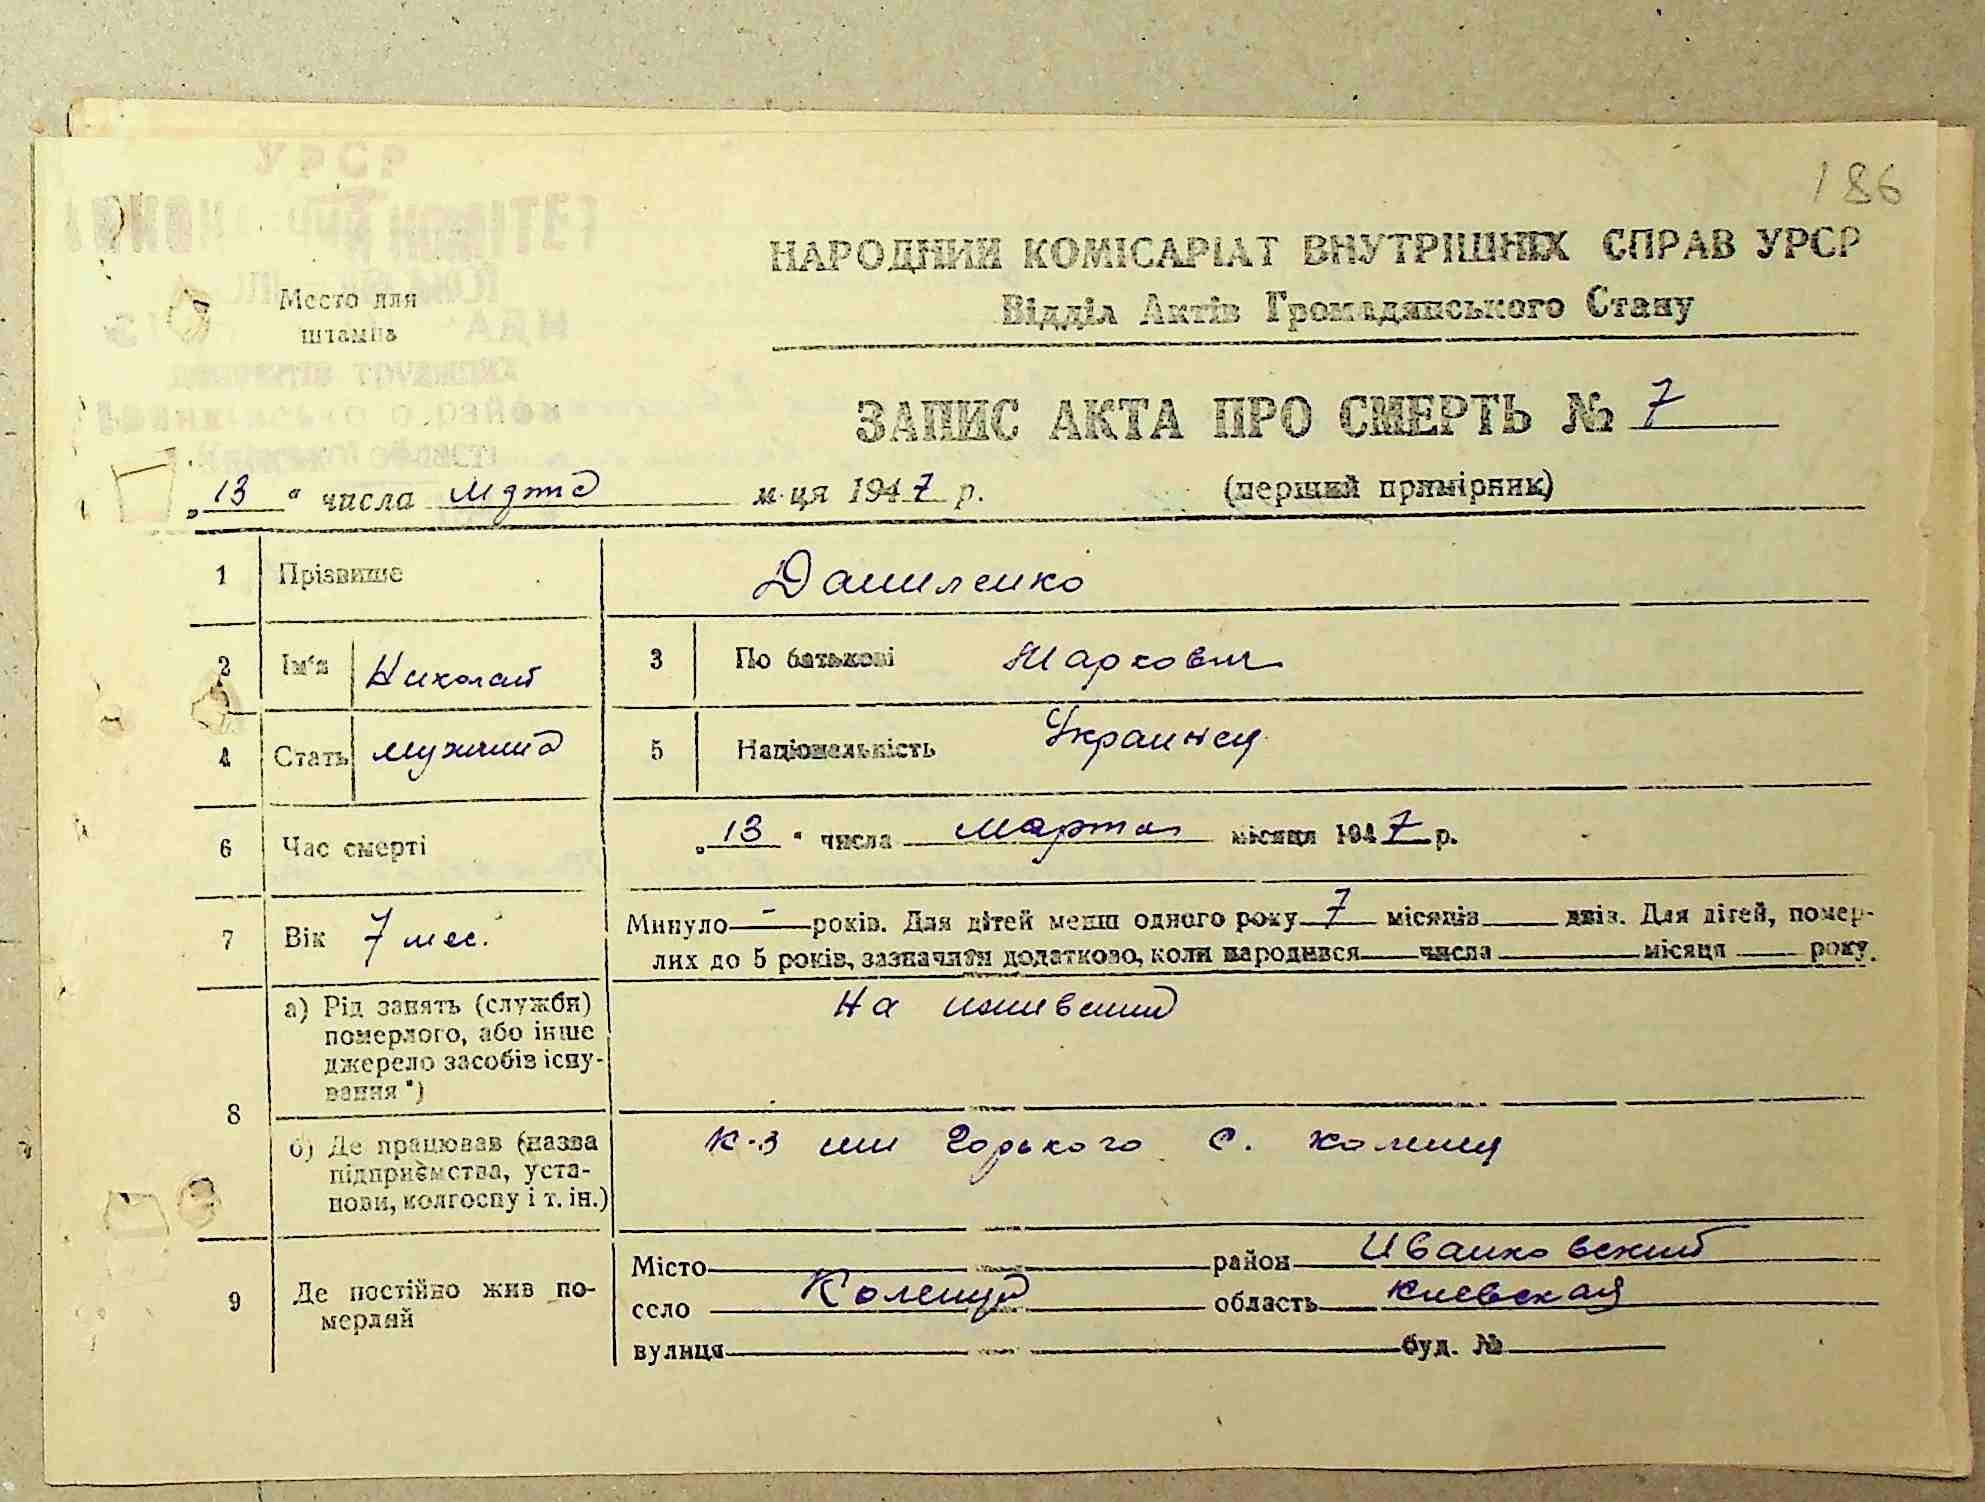 186
УРСР
НАРОДНИЙ КОМІСАРІАТ ВНУТРІШНІХ СПРАВ УРСР
Відділ Актів Громадянського Стану
Место для
штампа
ЗАПИС АКТА ПРО СМЕРТЬ № 7
„13“ числа марта м-ця 1947 р. (перший примірник)
1 Прізвище Даниленко
2 Ім'я Николай 3 По батькові Маркович
4 Стать мужчина 5 Національність Украинец
6 Час смерті „13“ числа марта місяця 1947 р.
7 Вік 7 мес. Минуло - років. Для дітей менш одного року 7 місяців днів. Для дітей, помер-
лих до 5 років, зазначити додатково, коли народився числа місяця року.
8 а) Рід занять (служби)
померлого, або інше
джерело засобів існу-
вання *)
На иждивении
б) Де працював (назва
підприємства, уста-
нови, колгоспу і т. ін.)
К-з им Горького с. Коленц
9 Де постійно жив по-
мерлий
Місто район Иванковский
село Коленца область Киевская
вулиця буд. №